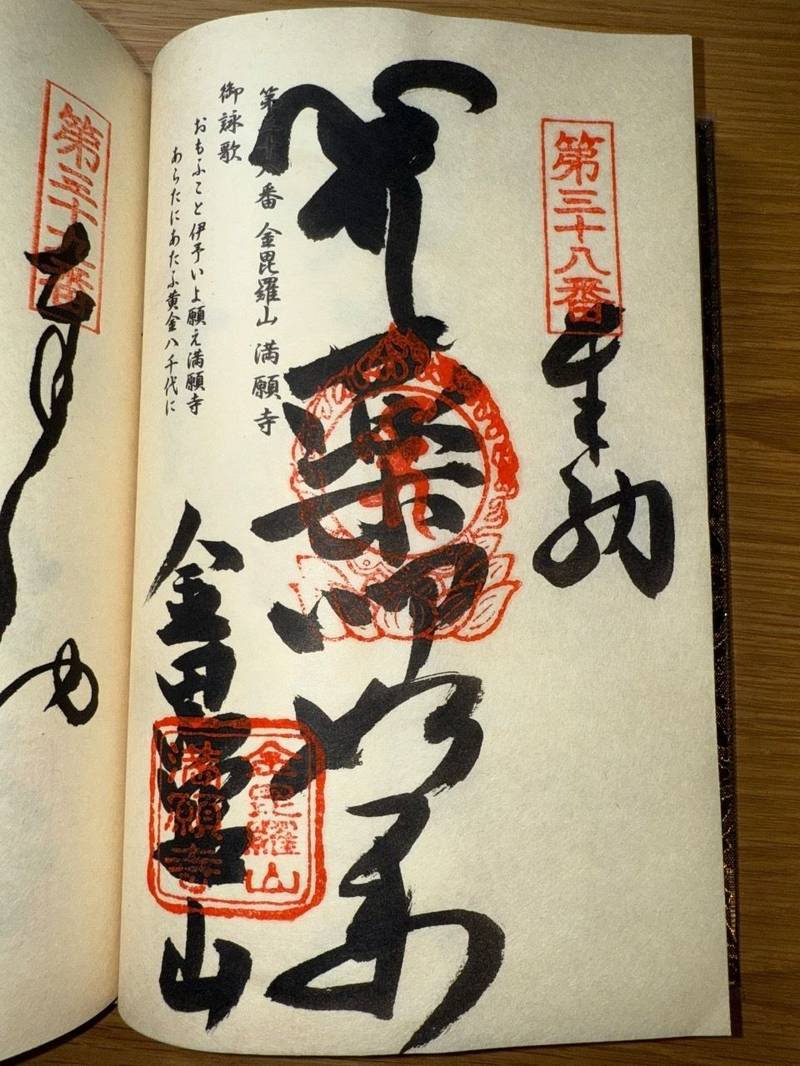 第三十八番
奉納
薬師如来
第三十八番 金毘羅山 満願寺
御詠歌
おもふこと伊予いよ願え満願寺
あらたにあたふ黄金八千代に
金毘羅山
金毘羅山
満願寺
第三十九番